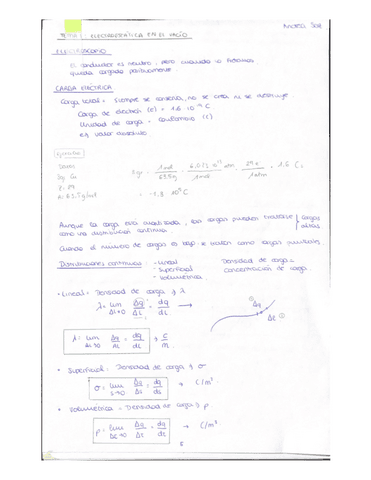 TEMA 1: ELECTROSTÁTICA EN EL VACÍO
ELECTROSCOPIO
El conductor es neutro, pero cuando lo
queda cargado positivamente
CARGA ELÉCTRICA
Carga total = Siempre se conserva, no se crea ni se destruye.
Carga de electrón (e) = 1.6 · 10⁻¹⁹ C
Unidad de carga = Coulombio (C)
es valor absoluto
Ejercicio:
Datos
3g Cu
Z: 29
A: 63.5 g/mol
3 gr · 1 mol / 63.5 g · 6,022 · 10²³ atm / 1 mol · 29 e⁻ / 1 atm · 1.6
Aunque la carga está cuantizada, las cargas pueden tratarse
como una distribución continua.
Cuando el número de cargas es bajo se tratan como cargas puntuales
Distribuciones continuas: - Lineal
- Superficial
- Volumétrica
Densidad de carga =
concentración de carga.
• Lineal = Densidad de carga λ
λ = lim Δi→0 Δq/Δl = dq/dl
Δq
Δl
λ = lim Δl→0 Δq/Δl = dq/dl → C/m
• Superficial = Densidad de carga σ
σ = lim S→0 Δq/Δs = dq/ds → C/m²
• Volumétrica = Densidad de carga ρ.
ρ = lim Δq/Δt = dq/dt → C/m³